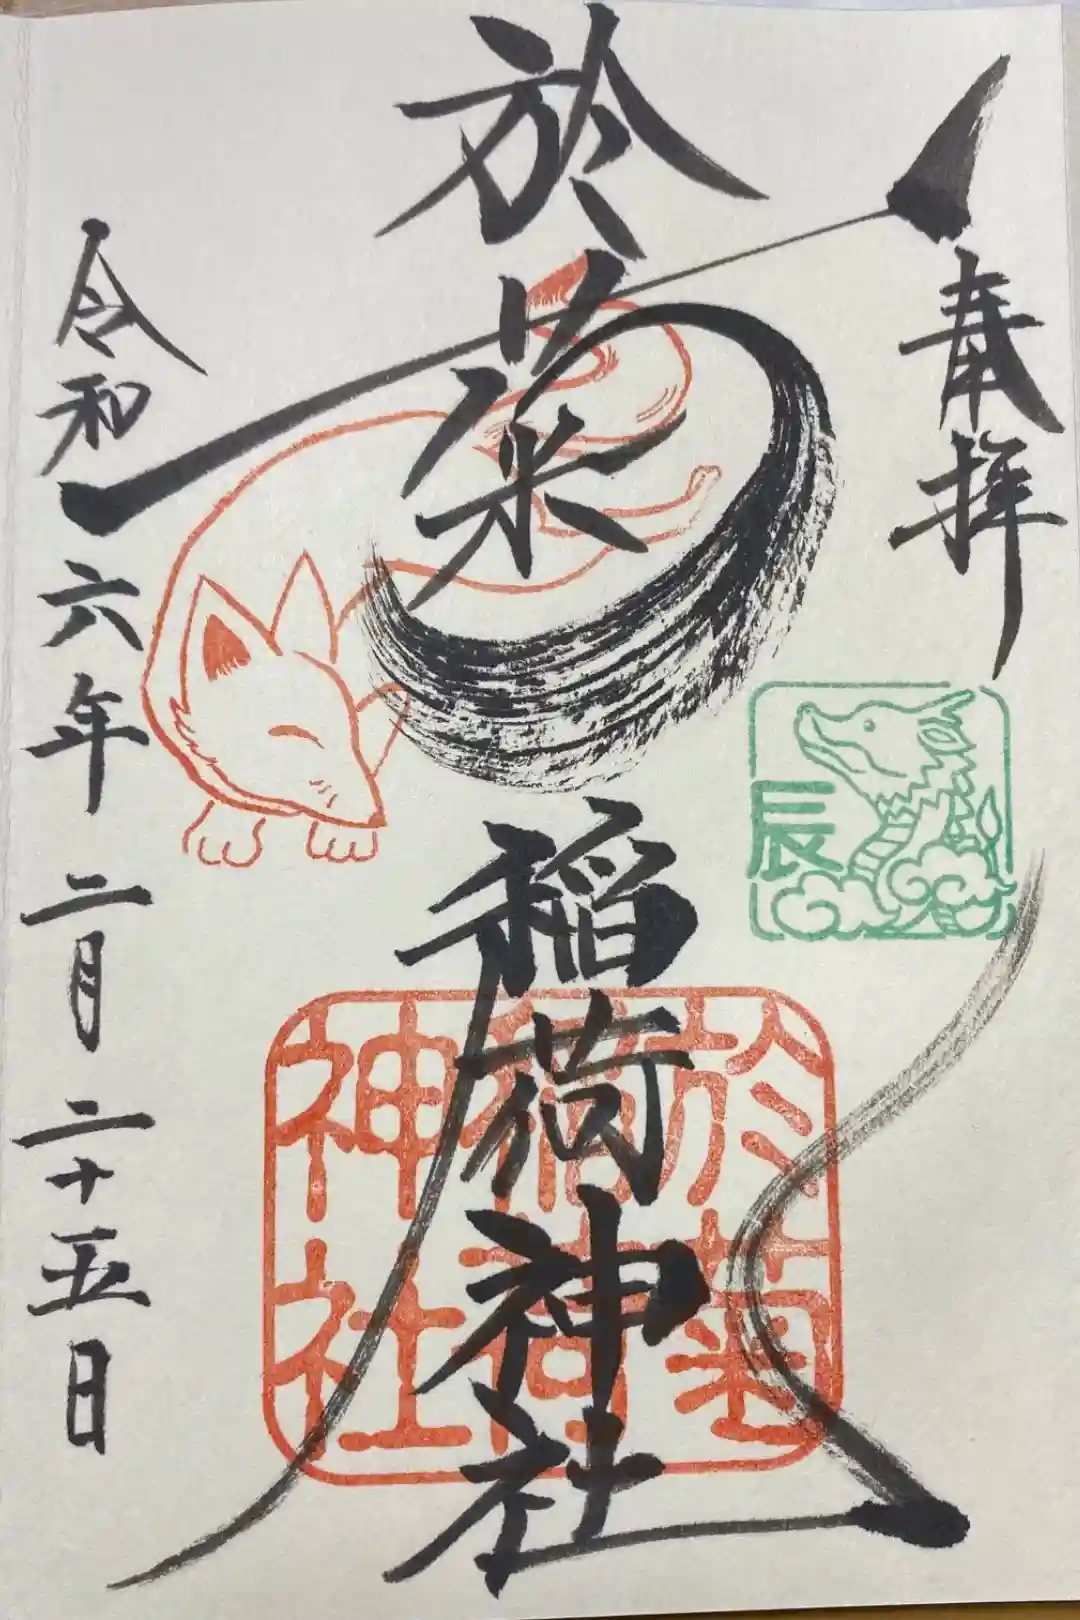 奉拝
辰
於菊稲荷神社
於菊
稲荷
神社
令和六年二月二十五日